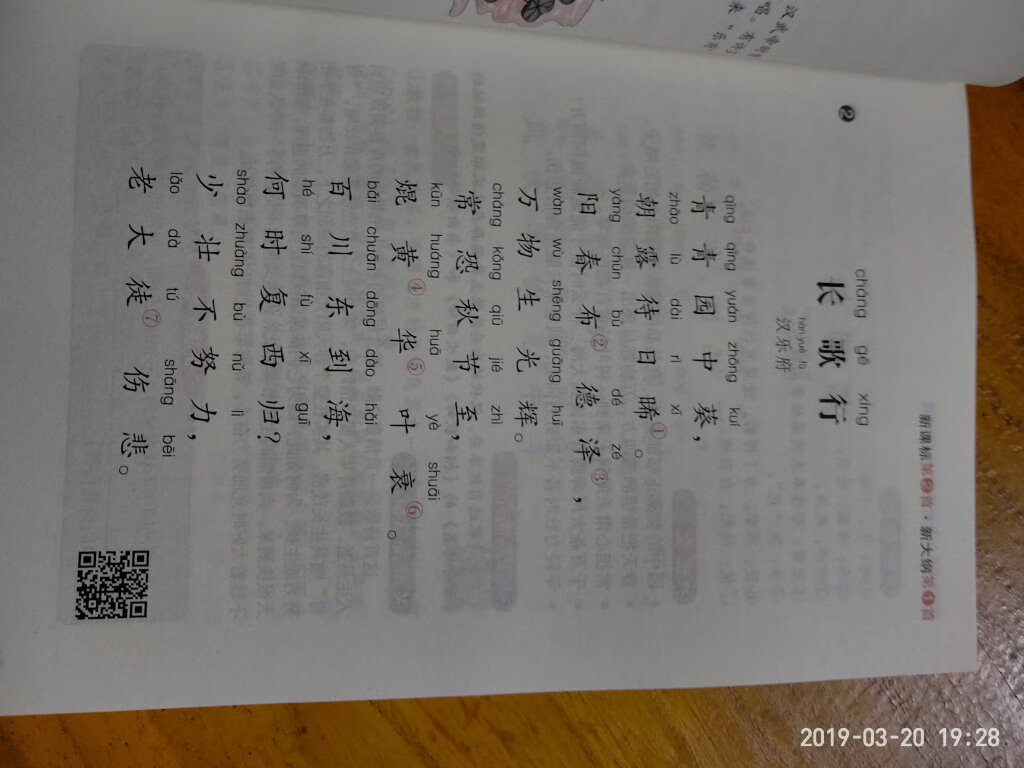 新课标第2首·新大纲第1首
cháng gē xíng
长歌行
hàn yuè fǔ
汉乐府
qīng qīng yuán zhōng kuí
青青园中葵，
zhāo lù dài rì xī
朝露待日晞①。
yáng chūn bù dé zé
阳春布②德泽③，
wàn wù shēng guāng huī
万物生光辉。
cháng kǒng qiū jié zhì
常恐秋节至，
kūn huáng huā yè shuāi
焜黄④华⑤叶衰⑥。
bǎi chuān dōng dào hǎi
百川东到海，
hé shí fù xī guī
何时复西归？
shào zhuàng bù nǔ lì
少壮不努力，
lǎo dà tú shāng bēi
老大徒⑦伤悲。
2
2019-03-20 19:28